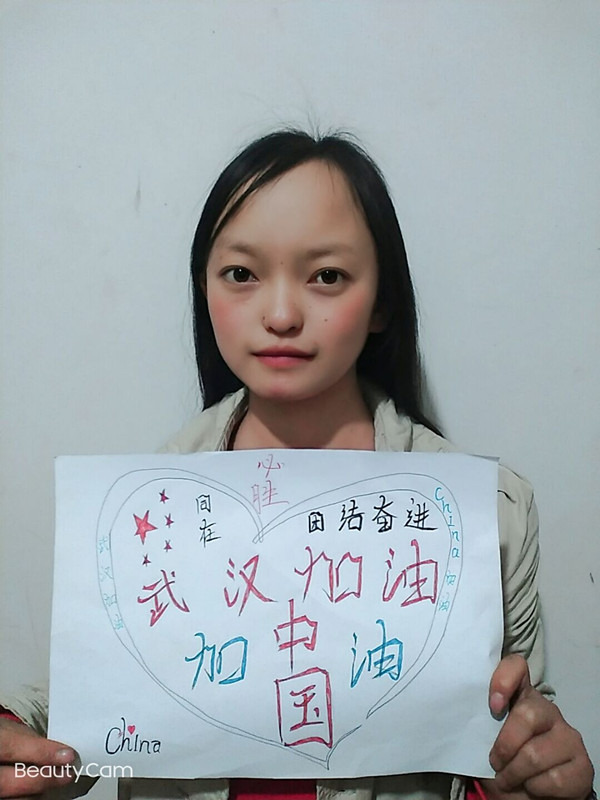 必胜
同在
团结奋进
China加油
武汉加油
武汉加油
中国
加油
China
BeautyCam